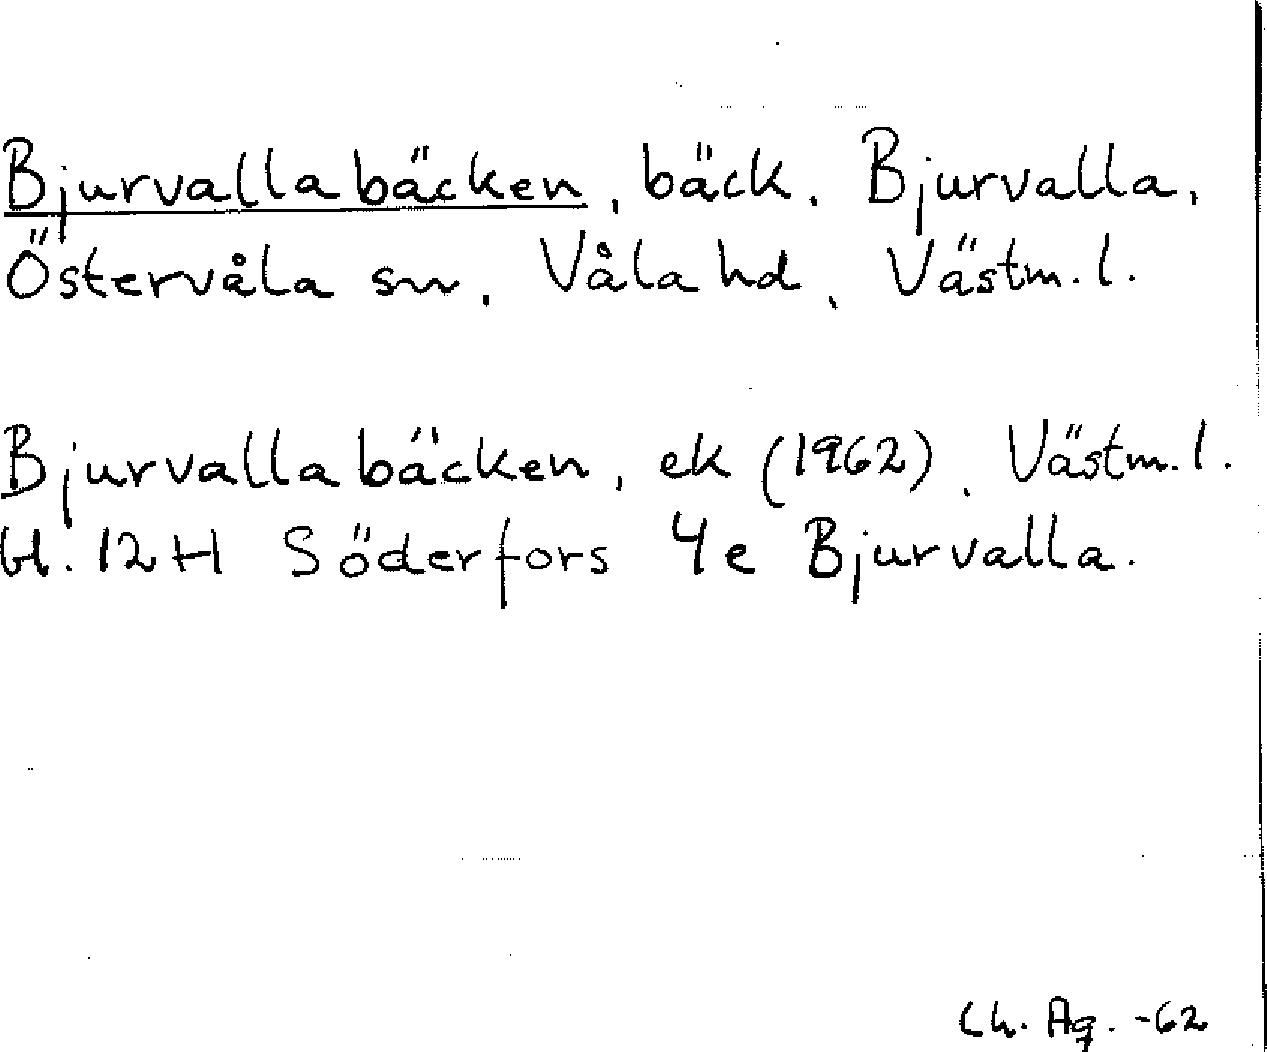 Bjurvallabäcken, bäck, Bjurvalla,
Östervåla sn, Våla hd, Västm. l.
Bjurvallabäcken, ek (1962), Västm. l.
bl. 12 H Söderfors 4 e Bjurvalla.
Ch. Ag. -62